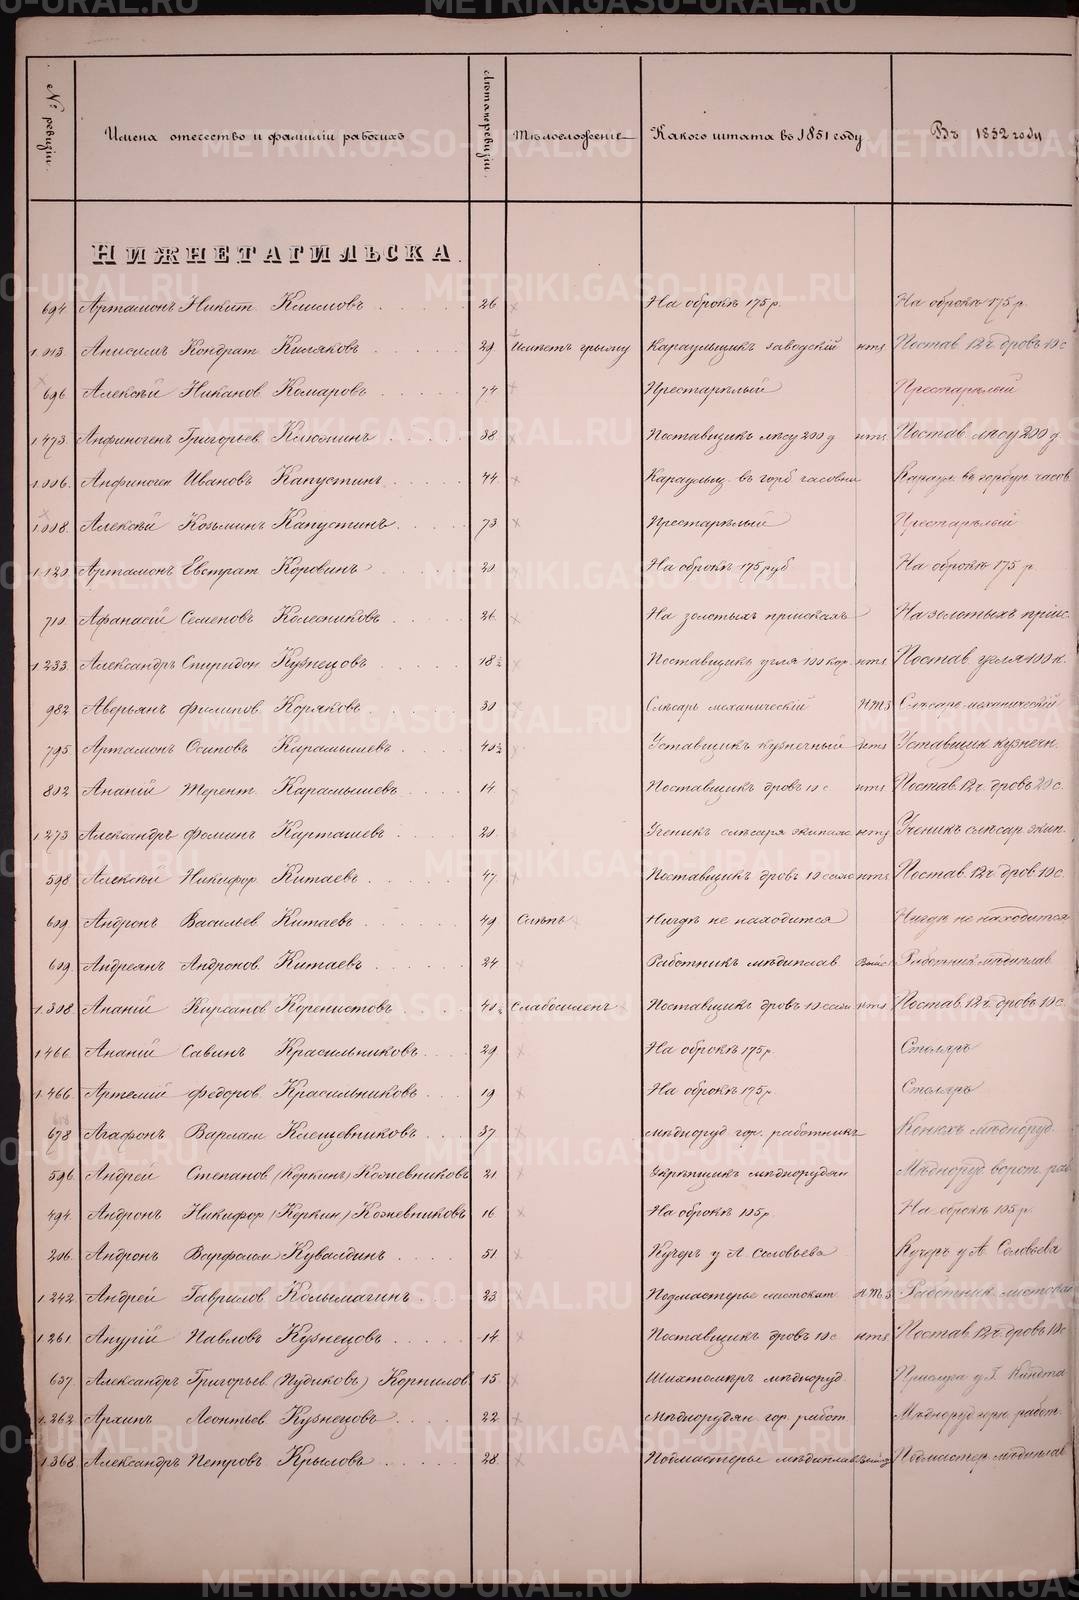 № ревизіи. Имена отечество и фамиліи рабочихъ Лѣта по ревизіи. Тѣлосложеніе Какого штата въ 1851 году Въ 1852 году
НИЖНЕТАГИЛЬСКА.
694 Артамонъ Никит. Климовъ 26 На оброкѣ 175 р. На оброкѣ 175 р.
1.013 Анисимъ Кондрат. Киляковъ 29 Имѣетъ грыжу Караульщикъ заводскій нтз Постав. 12 ч. дровъ 10 с
696 Алексѣй Никанов. Комаровъ 74 Престарѣлый Престарѣлый
1.473 Анфиногенъ Григорьев. Клюнинъ 38 Поставщикъ лѣсу 200 д нтз Постав. лѣсу 200 д.
1.006 Анфиноген Ивановъ Капустинъ 44 Караульщ. въ горб часовни Караул. въ горбун. часов.
1.008 Алексѣй Козьминъ Капустинъ 73 Престарѣлый Престарѣлый
1.120 Артамонъ Евстрат. Коровинъ 20 На оброкѣ 175 руб На оброкѣ 175 р
710 Афанасій Семеновъ Колесниковъ 26 На золотыхъ пріискахъ На золотыхъ пріис.
1.233 Александръ Спиридон. Кузнецовъ 18½ Поставщикъ угля 100 кор. нтз Постав. угля 100 к.
982 Аверьянъ Филипов. Коряковъ 30 Слѣсарь механическій НТЗ Слѣсарь механическій
795 Артамонъ Осиповъ Карамышевъ 40½ Уставщикъ кузнечный нтз Уставщик кузнечн.
802 Ананій Терент. Карамышевъ 14 Поставщикъ дровъ 10 с нтз Постав. 12 ч. дровъ 20 с.
1.273 Александръ Фоминъ Карташевъ 20 Ученикъ слѣсаря экипажн нтз Ученикъ слѣсар. экип.
598 Алексѣй Никифор. Китаевъ 47 Поставщикъ дровъ 10 саж нтз Постав. 12 ч. дров. 10 с.
609 Андронъ Васильев. Китаевъ 49 Слѣпъ Нигдѣ не находится Нигдѣ не находится
609 Андреянъ Андронов. Китаевъ 24 Работникъ мѣдиплав Работник мѣдиплав
1.308 Ананій Кирсанов. Коренистовъ 40½ Слабосиленъ Поставщикъ дровъ 10 саж нтз Постав. 12 ч. дровъ 10 с.
1.466 Ананій Савинъ Красильниковъ 29 На оброкѣ 175 р Столяръ
1.466 Артемій Федоров. Красильниковъ 19 На оброкѣ 175 р Столяръ
678 Агафонъ Варлам. Клещевниковъ 37 Мѣдноруд. гор. работникъ Конюхъ мѣдноруд.
596 Андрей Степанов. (Коркинъ) Кожевниковъ 21 Укрѣпщикъ мѣднорудян Мѣдноруд. ворот. раб.
494 Андронъ Никифор. (Коркин) Кожевниковъ 16 На оброкѣ 105 р. На оброкѣ 105 р.
206 Андронъ Варфалом. Кувалдинъ 51 Кучеръ у А. Соловьева Кучеръ у А. Соловьева
1.242 Андрей Гаврилов. Колымагинъ 23 Подмастерье листокат НТЗ Работник. листокат
1.261 Анурій Павловъ Кузнецовъ 14 Поставщикъ дровъ 10 с нтз Постав. 12 ч. дровъ 10 с
637 Александръ Григорьев. (Пудиковъ) Корнилов 15 Шихтмѣръ мѣдноруд. Прислуга у Г.
1.262 Архипъ Леонтьев. Кузнецовъ 22 Мѣднорудян. гор. работ. Мѣдноруд горн. работ.
1.368 Александръ Петровъ Крыловъ 28 Подмастерье мѣдиплав Подмастер. мѣдиплав